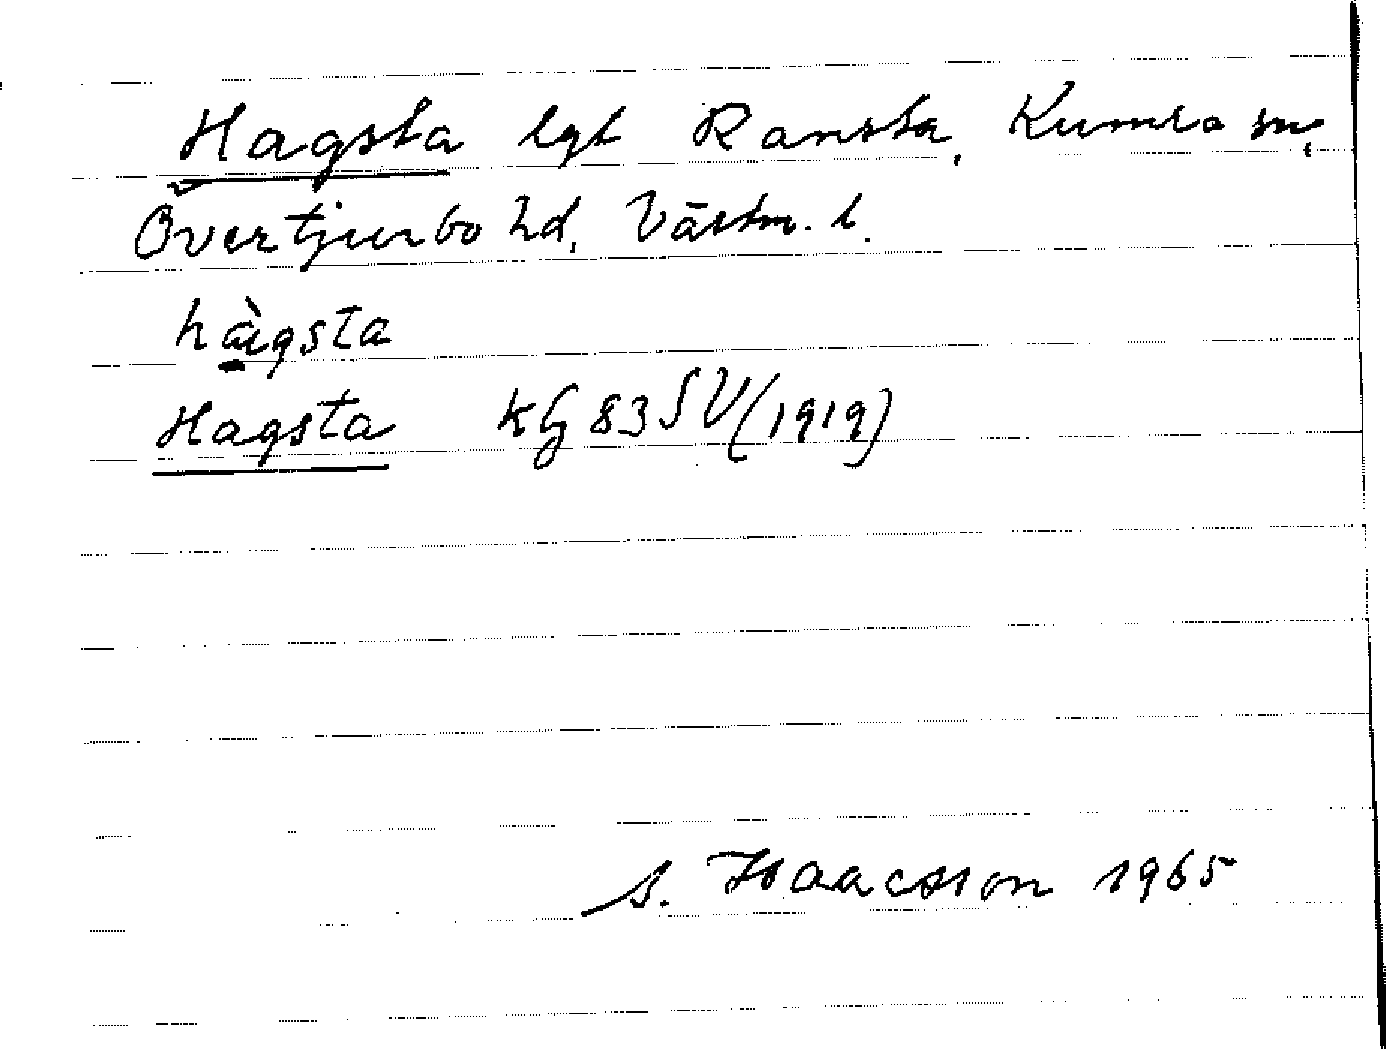 Hagsta lgt Ransta, Kumla sn,
Övertjurbo hd, Västm. l.
hàgsta
Hagsta kbg 83 SV (1919)
S. Isaacsson 1965